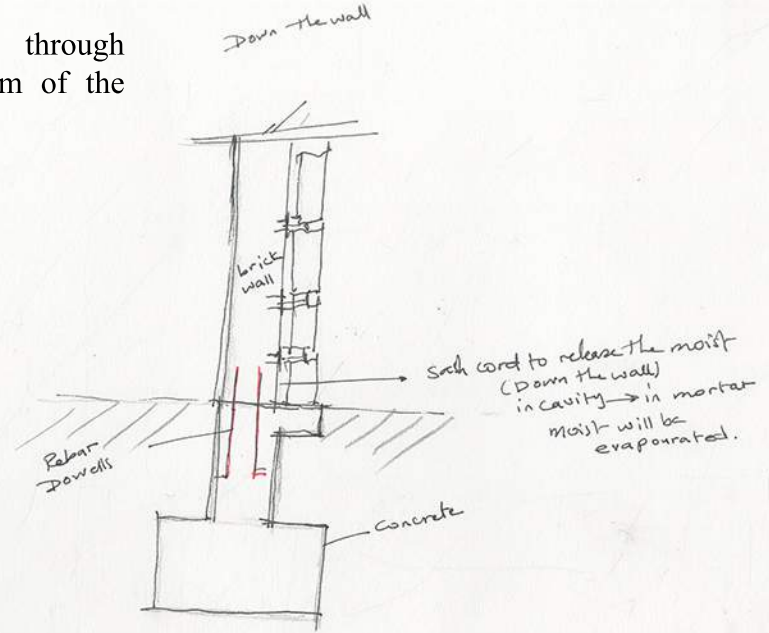 through
m of the
Down the wall
brick
wall
Sash cord to release the moist
(Down the wall)
in cavity → in mortar
moist will be
evapourated.
Rebar
Dowells
Concrete